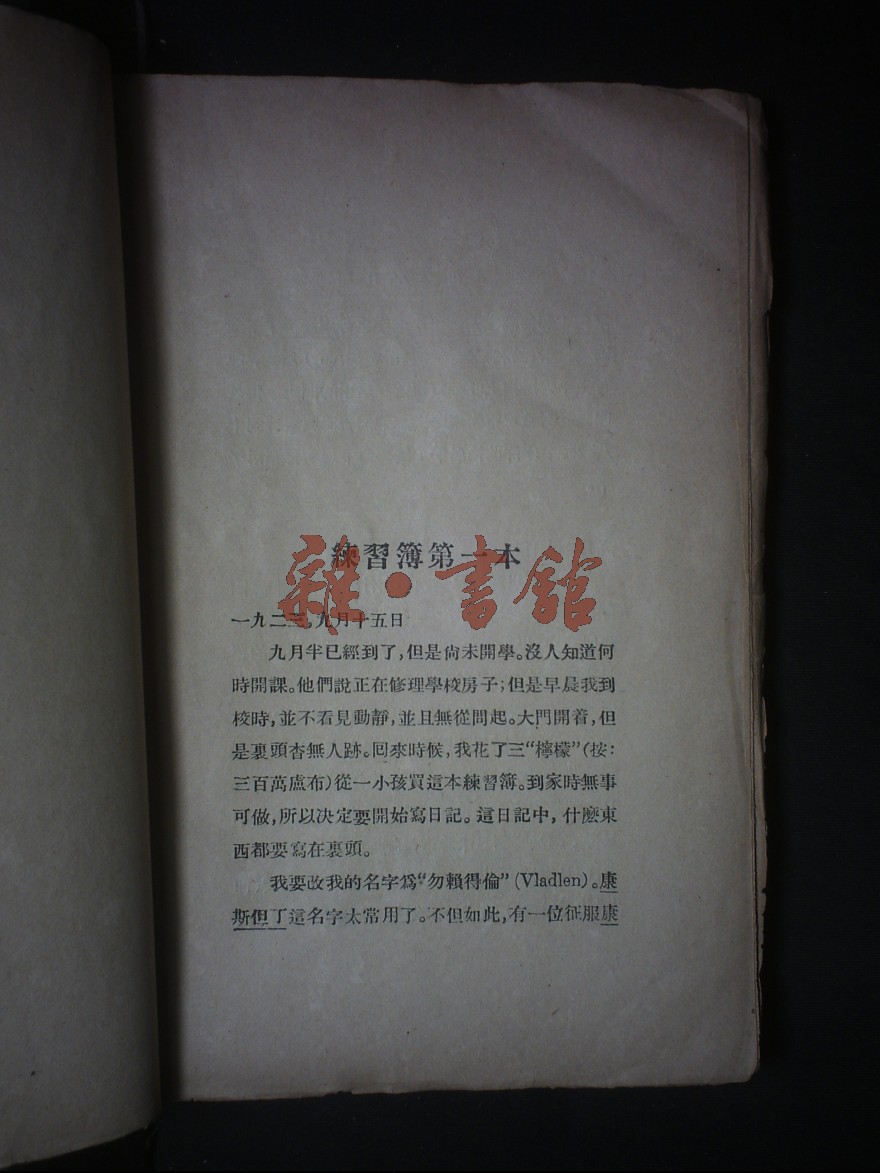 練習簿第一本
雜·書館
一九二三,九月十五日
九月半已經到了,但是尙未開學。沒人知道何
時開課。他們說正在修理學校房子;但是早晨我到
校時,並不看見動靜,並且無從問起。大門開着,但
是裏頭杳無人跡。囘來時候,我花了三“檸檬”(按:
三百萬盧布)從一小孩買這本練習簿。到家時無事
可做,所以決定要開始寫日記。這日記中,什麽東
西都要寫在裏頭。
我要改我的名字爲“勿賴得倫”(Vladlen)。康
斯但丁這名字太常用了。不但如此,有一位征服康